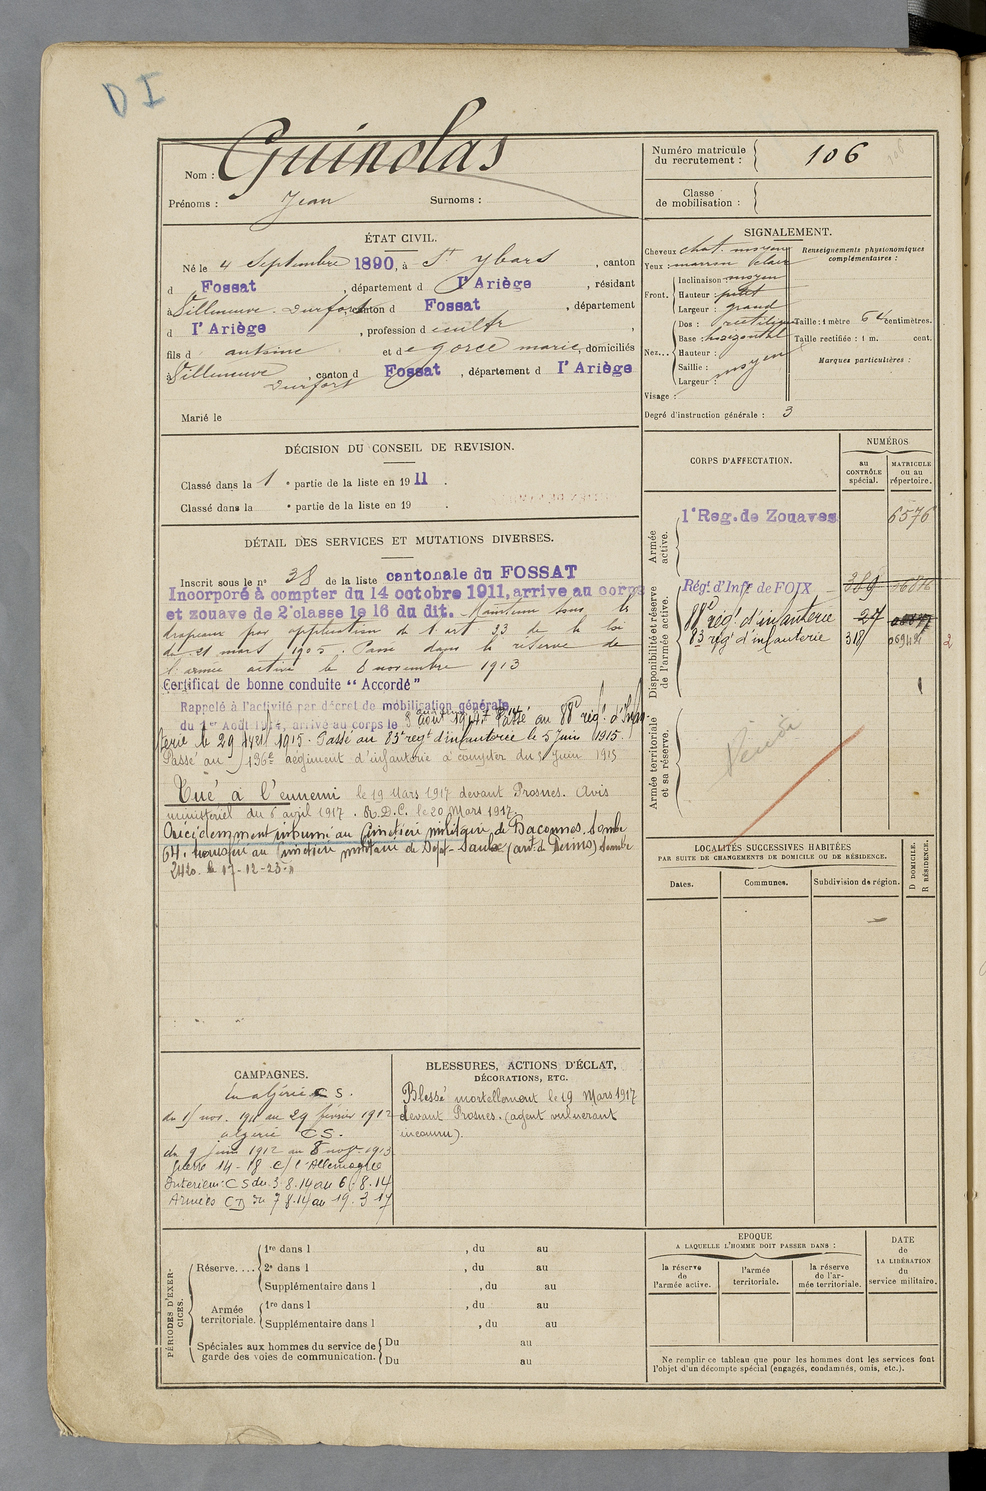 D I
Nom : Guinolas
Prénoms : Jean Surnoms :
Numéro matricule du recrutement : 106
106
Classe de mobilisation :
ÉTAT CIVIL.
Né le 4 Septembre 1890, à St Ybars, canton
d Fossat, département d l'Ariège, résidant
à Villeneuve-Durfort canton d Fossat, département
d l'Ariège, profession d cultr,
fils d antoine et de gorce marie, domiciliés
à Villeneuve Durfort, canton d Fossat, département d l'Ariège
Marié le
SIGNALEMENT.
Cheveux chat. moyen
Yeux : marron clair
Front. Inclinaison : moyen
Hauteur : petit
Largeur : grand
Nez... Dos : rectiligne
Base : horizontal
Hauteur :
Saillie : moyen
Largeur :
Visage :
Degré d'instruction générale : 3
Renseignements physionomiques complémentaires :
Taille : 1 mètre 64 centimètres.
Taille rectifiée : 1 m. cent.
Marques particulières :
DÉCISION DU CONSEIL DE REVISION.
Classé dans la 1 e partie de la liste en 1911.
Classé dans la e partie de la liste en 19 .
DÉTAIL DES SERVICES ET MUTATIONS DIVERSES.
Inscrit sous le n° 38 de la liste cantonale du FOSSAT
Incorporé à compter du 14 octobre 1911, arrive au corps
et zouave de 2e classe le 16 du dit. Maintenu sous les
drapeaux par application de l'art 33 de la loi
du 21 mars 1905. Passé dans la réserve de
l'armée active le 8 novembre 1913
Certificat de bonne conduite "Accordé"
Rappelé à l'activité par décret de mobilisation générale
du 1er Août 1914, arrivé au corps le 3 août 1914. Passé au 88e régt d'Infan-
terie le 29 1915. Passé au 83e régt d'infanterie le 5 Juin 1915.
Passé au 136e Régiment d'infanterie à compter du Juin 1915
Tué à l'ennemi le 19 Mars 1917 devant Prosnes. Avis
ministériel du 6 avril 1917. R.D.C. le 20 Mars 1917.
Précédemment inhumé au Cimetière militaire de Baconnes, tombe
64. transféré au Cimetière militaire de Sept-Saulx (art de Reims) tombe
2420. le 17-12-23.
CORPS D'AFFECTATION.
NUMÉROS
au CONTRÔLE spécial.
MATRICULE ou au répertoire.
Armée active.
1er Reg. de Zouaves 6576
Disponibilité et réserve de l'armée active.
Régt. d'Infie de FOIX 389
88e régt d'infanterie 27
83e régt d'infanterie 318
2
Armée territoriale et sa réserve.
LOCALITÉS SUCCESSIVES HABITÉES
PAR SUITE DE CHANGEMENTS DE DOMICILE OU DE RÉSIDENCE.
Dates. Communes. Subdivision de région. D DOMICILE. R RÉSIDENCE.
CAMPAGNES.
En algérie C S.
du 15 nov. 1911 au 29 février 1912
algérie C S.
du 9 juin 1912 au 8 nov. 1913
Guerre 14-18 c/ l'Allemagne
Intérieur : C S du 3.8.14 au 6.8.14
Armées C D du 7.8.14 au 19.3.17
BLESSURES, ACTIONS D'ÉCLAT,
DÉCORATIONS, ETC.
Blessé mortellement le 19 Mars 1917
devant Prosnes. (agent vulnérant
inconnu).
PÉRIODES D'EXERCICES.
Réserve.... 1re dans l , du au
2e dans l , du au
Supplémentaire dans l , du au
Armée territoriale. 1re dans l , du au
Supplémentaire dans l , du au
Spéciales aux hommes du service de garde des voies de communication. Du au
Du au
EPOQUE
A LAQUELLE L'HOMME DOIT PASSER DANS :
la réserve de l'armée active.
l'armée territoriale.
la réserve de l'armée territoriale.
DATE de LA LIBÉRATION du service militaire.
Ne remplir ce tableau que pour les hommes dont les services font
l'objet d'un décompte spécial (engagés, condamnés, omis, etc.).